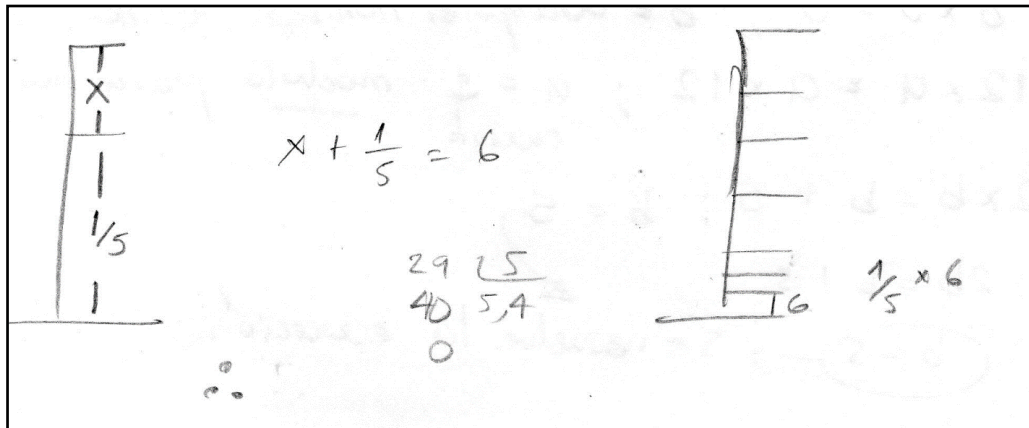 x
x + 1/5 = 6
1/5
29 5
40 5,4
0
∴
6
1/5 x 6